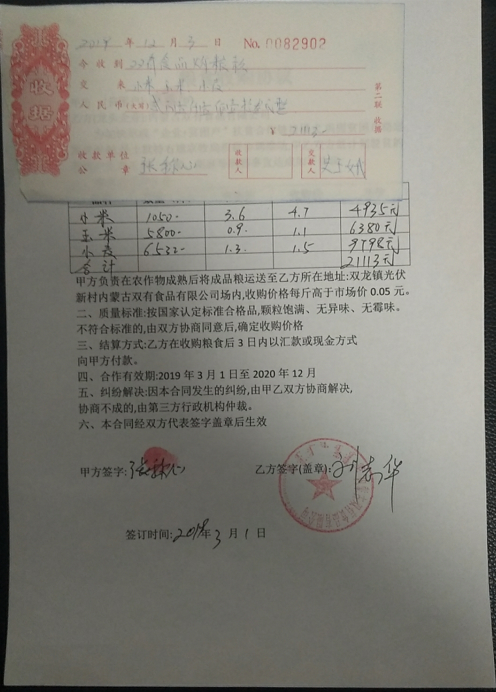 收据
2019 年 12 月 3 日 No. 0082902
今收到
交来 小米 玉米 小麦
人民币(大写)
¥ 21113.-
第二联 收据
收款单位
公章
收款人
交款人
小米 1050- 3.6 4.7 4935元
玉米 5800- 0.9. 1.1 6380元
小麦 6532- 1.3. 1.5 9798元
合计 21113元
甲方负责在农作物成熟后将成品粮运送至乙方所在地址:双龙镇光伏
新村内蒙古双有食品有限公司场内,收购价格每斤高于市场价 0.05 元。
二、质量标准:按国家认定标准合格品,颗粒饱满、无异味、无霉味。
不符合标准的,由双方协商同意后,确定收购价格
三、结算方式:乙方在收购粮食后 3 日内以汇款或现金方式
向甲方付款。
四、合作有效期:2019 年 3 月 1 日至 2020 年 12 月
五、纠纷解决:因本合同发生的纠纷,由甲乙双方协商解决,
协商不成的,由第三方行政机构仲裁。
六、本合同经双方代表签字盖章后生效
甲方签字: 乙方签字(盖章):
签订时间:2019年 3 月 1 日